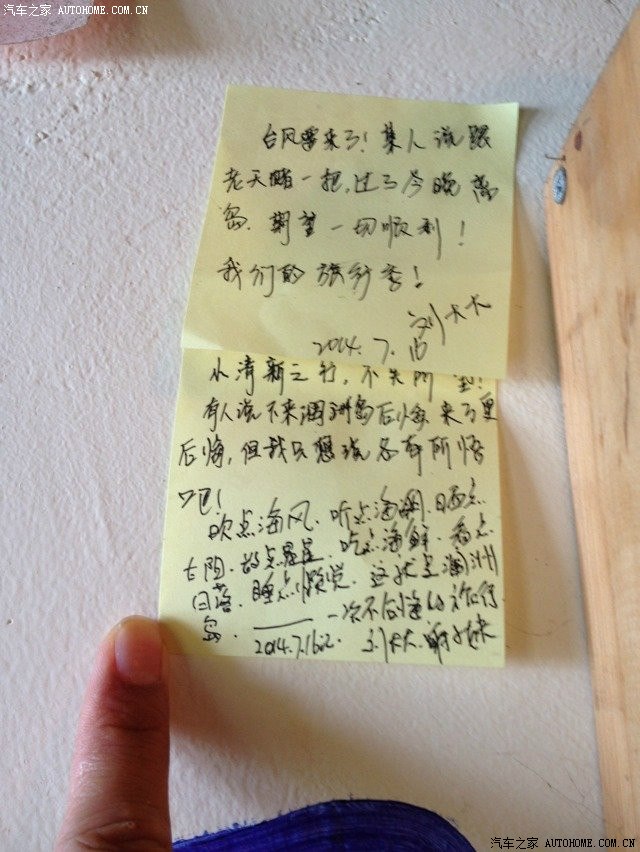 汽车之家 AUTOHOME.COM.CN
台风要来了！某人说跟
老天赌一把，过了今晚离
岛。期望一切顺利！
我们的旅行季！
刘大大
2014.7.
小清新之行，不失所望！
有人说不来涠洲岛后悔来了更
后悔，但我只想说各有所悟
吧！
吹点海风、听点海潮、晒点
太阳、数点星星、吃点海鲜、看点
日落、睡点懒觉、这就是涠洲
岛、一次不后悔的旅行
2014.7.16 刘大大
汽车之家 AUTOHOME.COM.CN